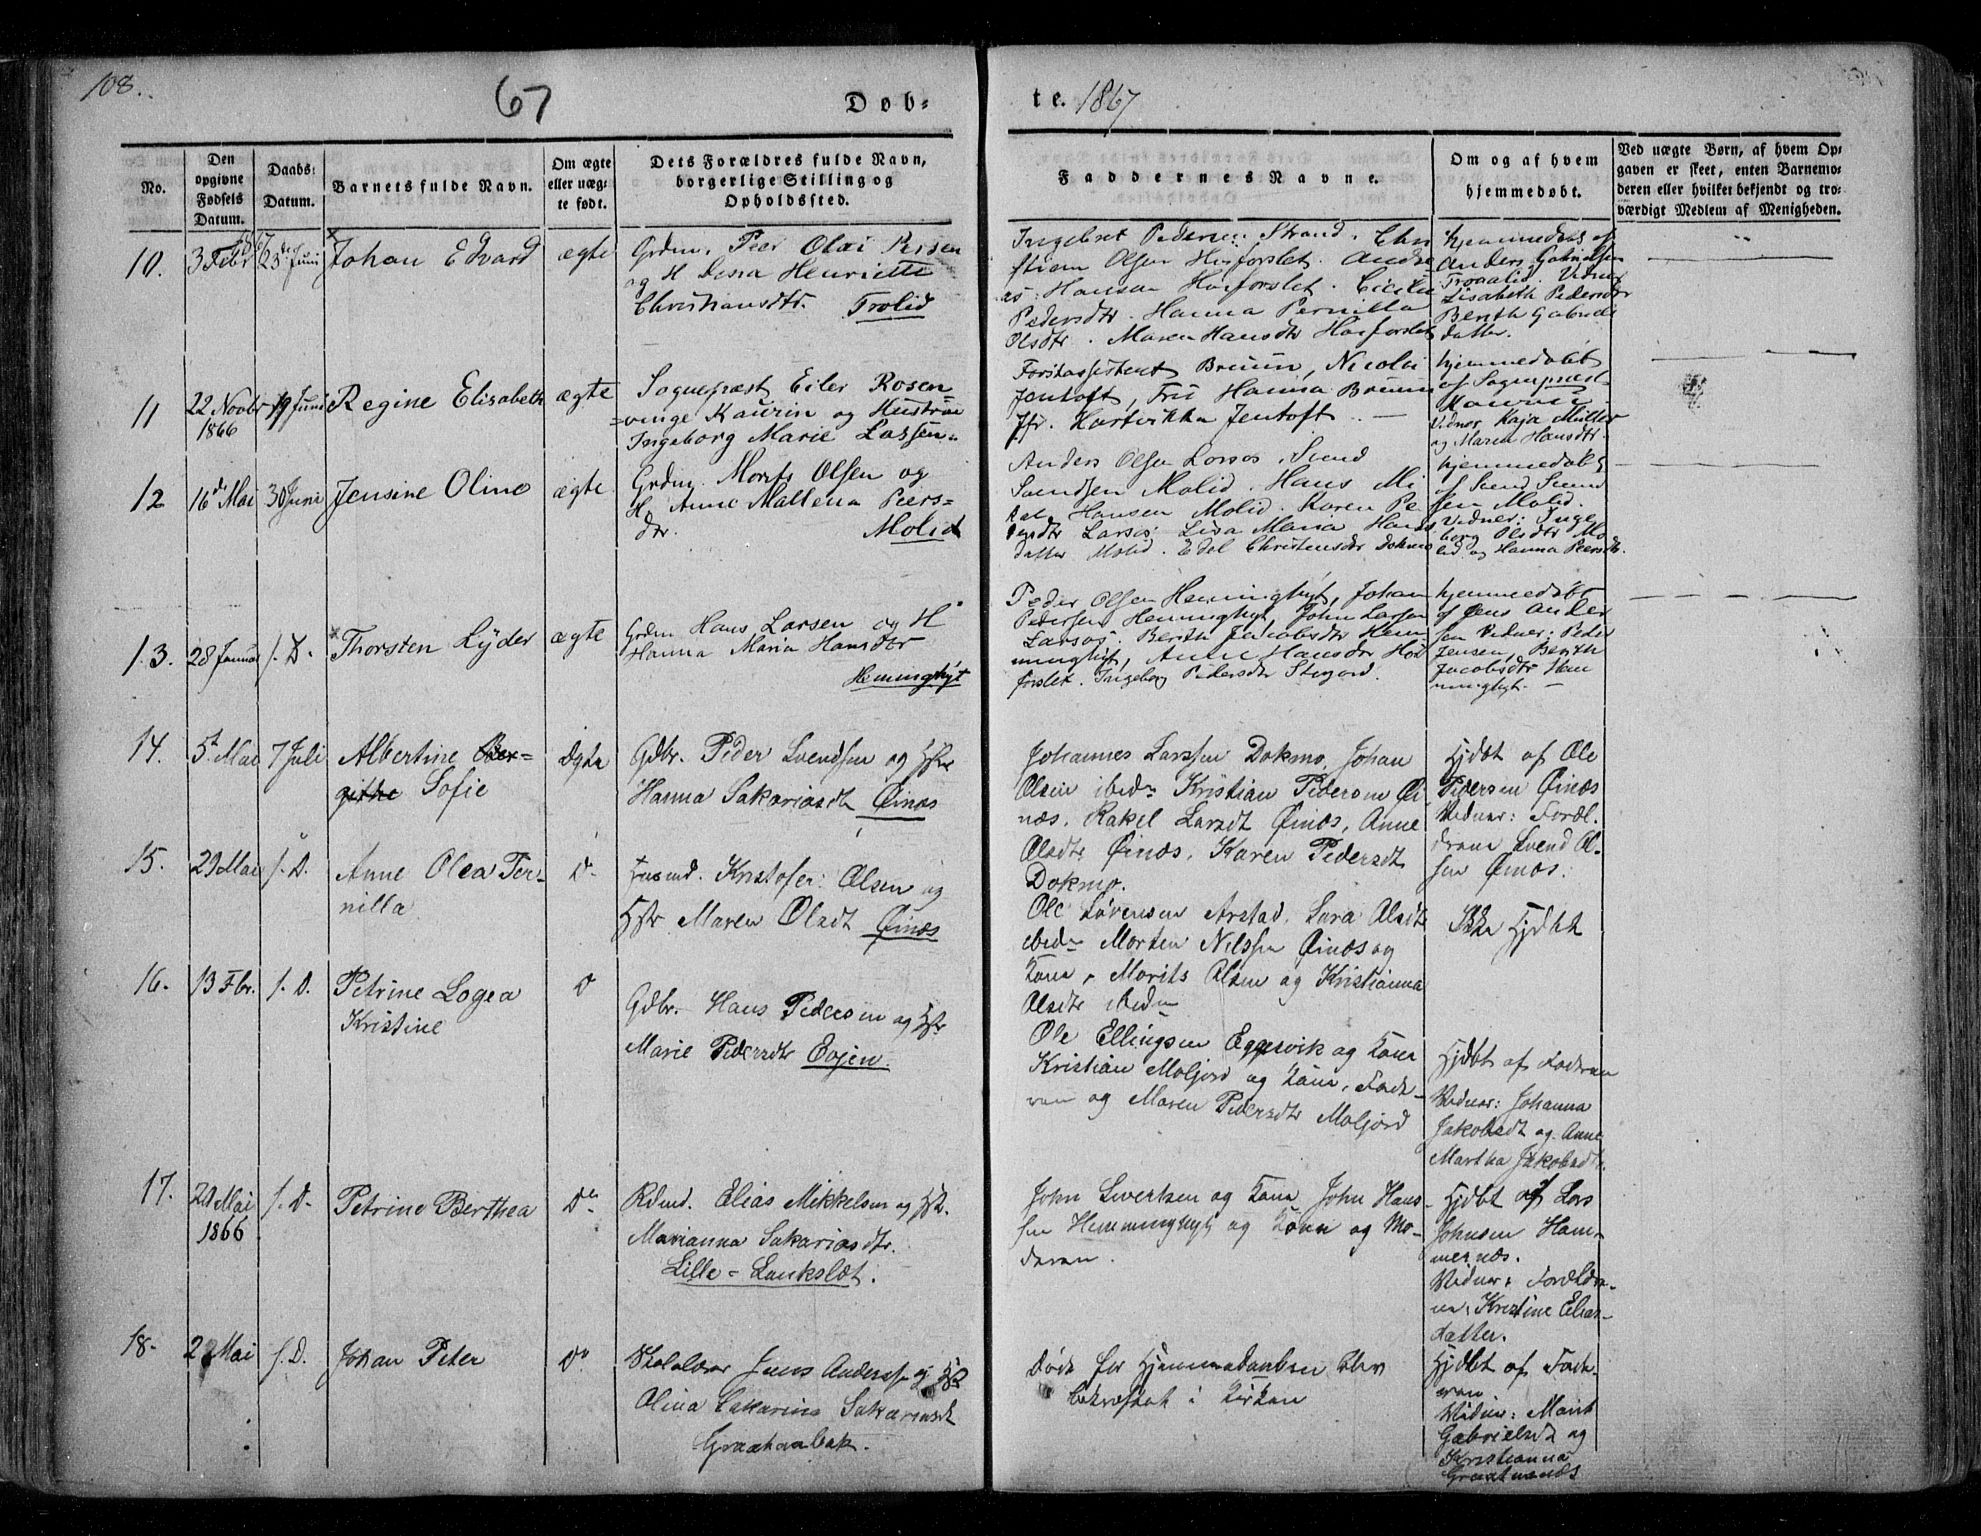 108.
67
Døb-
te. 1867
No.
Den opgivne Fødsels Datum.
Daabs-Datum.
Barnets fulde Navn.
Om ægte eller uægte født.
Dets Forældres fulde Navn, borgerlige Stilling og Opholdssted.
Faddernes Navne.
Om og af hvem hjemmedøbt.
Ved uægte Børn, af hvem Opgaven er skeet, enten Barnemoderen eller hvilket bekjendt og troværdigt Medlem af Menigheden.
10.
3 Febr 1867
23de Juni
Johan Edvard
ægte
Grdm. Peer Olai Persen
og H Dessa Henriette
Christiansdtr. Trolid
Ingebret Pedersen Strand. Chri
stian Olsen Hosforslet. Andre
as Hansen Hosforslet. Cicilie
Pedersdtr. Hanna Pernilla
Olsdtr. Maren Hansdtr Hosforslet
hjemmedøbt af
Anders Gabrielsen
Troaalid. Vidner
Lisabeth Pedersdtr
Berith Gabriels
datter.
11
22 Novbr
1866
19 Juni
Regine Elisabeth
ægte
Sognepræst Eiler Rosen
vinge Kaurin og Hustrue
Ingeborg Marie Lassen
Forstassistent Bruun, Nicolai
Jentoft, Fru Hanna Bruun
Jfr. Hartvikka Jentoft.
hjemmedøbt
af Sognepræst
Kaurin
Vidner Kaja Müller
og Maren Hansdtr.
12
16de Mai
30 Juni
Jensine Oline
ægte
Grdm. Morits Olsen og
H. Anne Maltena Peers-
dtr. Molid
Anders Olsen Larsos. Svend
Svendsen Molid. Hans Mi
kal Hansen Molid. Karen Pe
dersdtr Larsos Lisa Maria Hans
datter Molid. Edel Christensdtr Dokmo
hjemmedøbt
af Svend Svend
sen Molid.
Vidner: Inge
borg Olsdtr Mo
lid og Hanna Peersdtr.
13.
28 Januar
s. D.
Thorsten Lyder
ægte
Grdm Hans Larsen og H
Hanna Maria Hansdtr
Heminghyt
Peder Olsen Heminghyt, Johan
Pedersen Heminghyt, John Larsen
Larsos. Berith Jacobsdtr Hem
minghyt, Anne Hansdtr Hos
forslet. Ingeborg Pedersdtr Stegord.
hjemmedøbt
af Jens Ander
sen Vidner: Peder
Jensen, Berith
Jacobsdtr Hem
minghyt.
14.
5t Mai
7 Juli
Albertine Ber-
githe Sofie
ægte
Gdbr. Peder Svendsen og Hstr
Hanna Sakariasdt Øinæs
Johannes Larssen Dokmo, Johan
Olsen ibed. Kristian Pedersen Øi
næs. Rakel Larsdt Øinæs, Anne
Olsdtr Øinæs. Karen Pedersdt
Dokmo.
Hjdbt af Ole
Pedersen Øinæs
Vidner: Foræl-
drene Svend Ol-
sen Øinæs.
15.
29 Mai
s. D.
Anne Olea Per-
nilla
D.
Husmd. Kristofer Olsen og
Hstr Maren Olsdt Øinæs
Ole Sørensen Arstad. Sara Olsdtr
ibed. Morten Nilssen Øinæs og
Kone, Morits Olsen og Kristianna
Olsdtr ibed.
Ikke Hjdbt
16.
13 Fbr.
s. D.
Petrine Logea
Kristine
D
Gdbr. Hans Pedersen og Hstr
Marie Pedersdtr Evjen.
Ole Ellingsen Eggesvik og Kone
Kristian Moljord og Kone, Fade-
ren og Maren Pedersdtr Moljord
Hjdbt af Faderen
Vidner: Johanna
Jakobsdt og Anne
Martha Jakobsdtr.
17.
Mai
1866
s. D.
Petrine Berthea
Do
Rdmd. Elias Mikkelsen og Hstr.
Marianna Sakariasdtr.
Lille-Lankslæt.
John Sivertsen og Kone John Hans-
sen Hemminghyt og Kone og Mo-
deren.
Hjdbt af Lars
Johnsen Ham-
mernæs.
Vidner: Forældre-
ne, Kristine Elias-
datter.
18.
2 Mai
s. D.
Johan Peter
Do
Skolelærer Jens Anderssen og Hstr
Olina Sakarina Sakariasdt
Graatnanbak.
Døde før Hjemmedaaben blev
bekræftet i Kirken
Hjdbt af Fade-
ren
Vidner: Marit
Gabrielsdt og
Kristianna
Graatnanæs